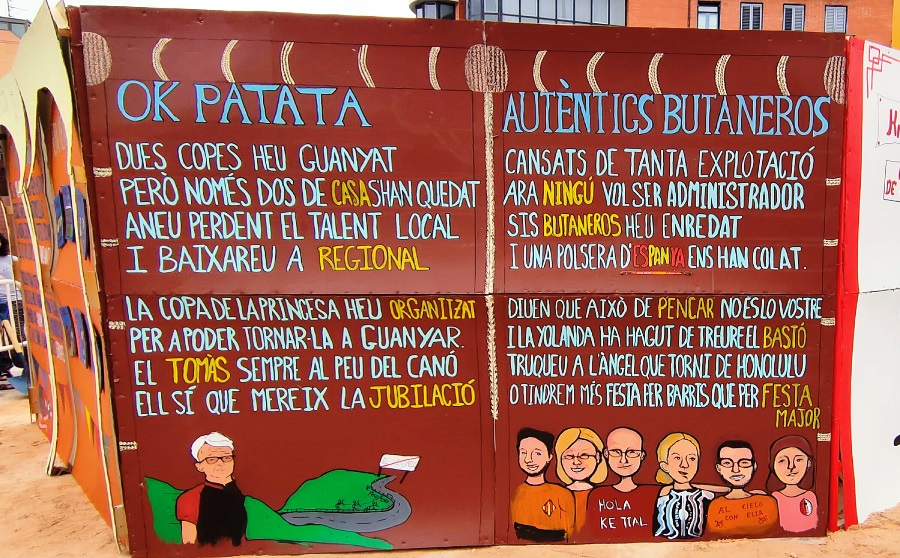 OK PATATA
DUES COPES HEU GUANYAT
PERÒ NOMÉS DOS DE CASA SHAN QUEDAT
ANEU PERDENT EL TALENT LOCAL
I BAIXAREU A REGIONAL
LA COPA DE LA PRINCESA HEU ORGANITZAT
PER A PODER TORNAR-LA A GUANYAR.
EL TOMÀS SEMPRE AL PEU DEL CANÓ
ELL SÍ QUE MEREIX LA JUBILACIÓ
AUTÈNTICS BUTANEROS
CANSATS DE TANTA EXPLOTACIÓ
ARA NINGÚ VOL SER ADMINISTRADOR
SIS BUTANEROS HEU ENREDAT
I UNA POLSERA D'ESPANYA ENS HAN COLAT.
DIUEN QUE AIXÒ DE PENCAR NO ES LO VOSTRE
I LA YOLANDA HA HAGUT DE TREURE EL BASTÓ
TRUQUEU A L'ÀNGEL QUE TORNI DE HONOLULU
O TINDREM MÉS FESTA PER BARRIS QUE PER FESTA
MAJOR
HOLA
KE TTAL
AL CIELO
CON ELLA